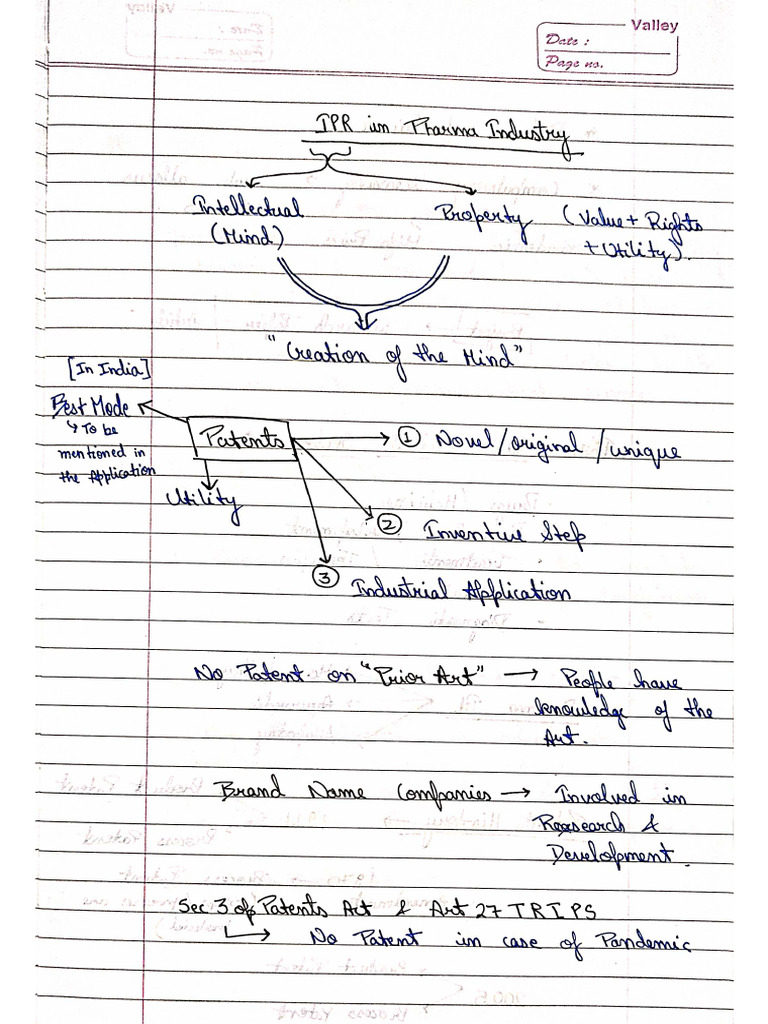 Valley
Date :
Page no.
IPR in Pharma Industry
Intellectual Property (Value + Rights
(Mind) + Utility).
"Creation of the Mind"
[In India]
Best Mode
↳ To be
mentioned in
the Application
Patents
Utility
① Novel/original/unique
② Inventive Step
③ Industrial Application
No Patent on "Prior Art" → People have
knowledge of the
Art.
Brand Name Companies → Involved in
Research &
Development.
Sec 3 of Patents Act & Art 27 TRIPS
↳ No Patent in case of Pandemic